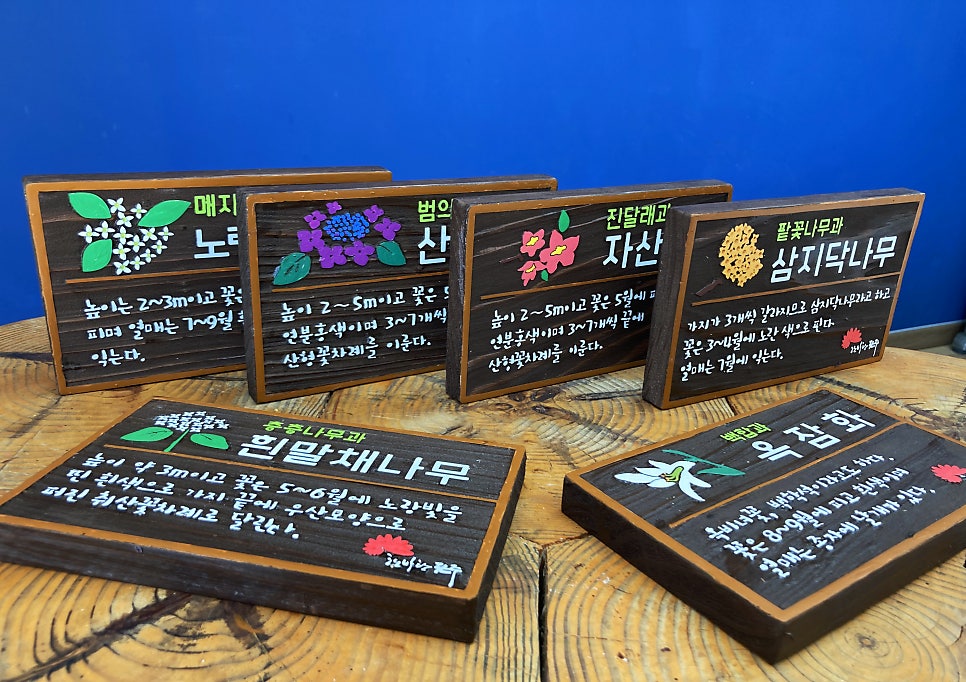 매지
노
높이는 2~3m이고 꽃은
피며 열매는 7~9월
익는다.
범의
산
높이 2~5m이고 꽃은
연분홍색이며 3~7개씩
산형꽃차례를 이룬다.
진달래과
자산
높이 2~5m이고 꽃은 5월에 피
연분홍색이며 3~7개씩 끝에
산형꽃차례를 이룬다.
팥꽃나무과
삼지닥나무
가지가 3개씩 갈라지므로 삼지닥나무라고 하고
꽃은 3~4월에 노란 색으로 핀다.
열매는 7월에 익는다.
층층나무과
흰말채나무
높이 약 3m이고 꽃은 5~6월에 노란빛을
띤 흰색으로 가지 끝에 우산모양으로
퍼진 취산꽃차례로 달린다.
백합과
옥잠화
옥비녀꽃, 백학석이라고도 한다.
꽃은 8~9월에 피고 흰색이며
열매는 종자에 날개가 있다.